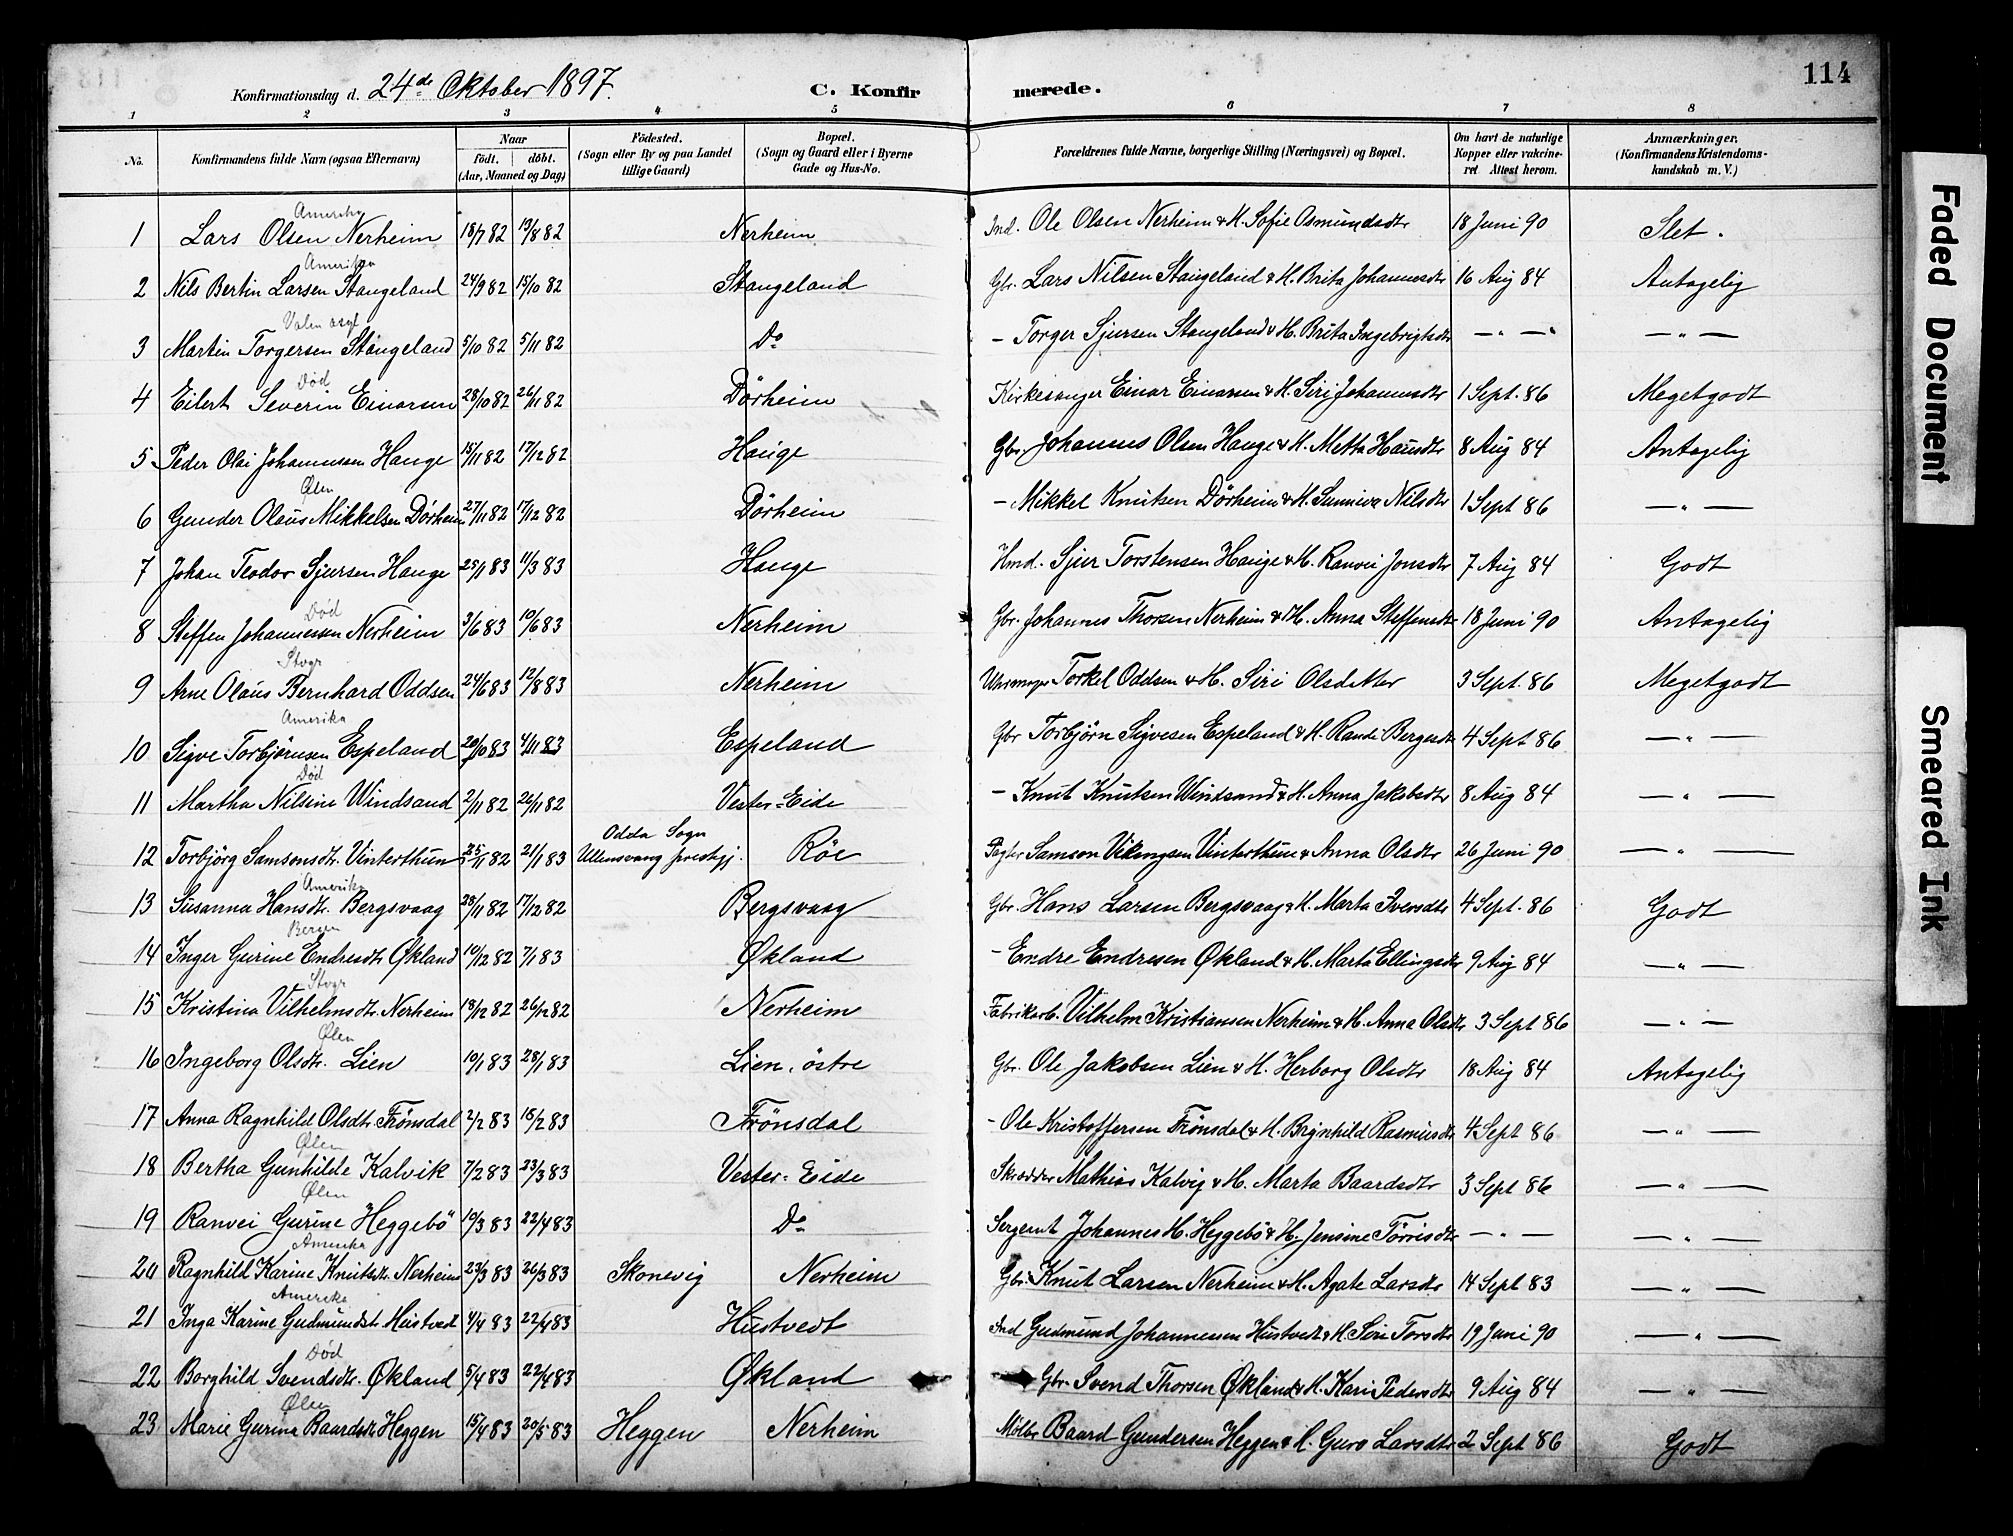 114
Konfirmationsdag d. 24de Oktober 1897.
C. Konfirmerede.
1 2 3 4 5 6 7 8
No. Konfirmandens fulde Navn (ogsaa Efternavn) Naar født. døbt. (Aar, Maaned og Dag) Fødested. (Sogn eller By og paa Landet tillige Gaard) Bopæl. (Sogn og Gaard eller i Byerne Gade og Hus-No. Forældrenes fulde Navne, borgerlige Stilling (Næringsvei) og Bopæl. Om havt de naturlige Kopper eller vakcineret Attest herom. Anmærkninger. (Konfirmandens Kristendomskundskab m. V.)
Amerika
1 Lars Olsen Nerheim 18/7 82 13/8 82 Nerheim Ind. Ole Olsen Nerheim & H. Sofie Osmundsdtr 18 Juni 90 Slet.
Amerika
2 Nils Bertin Larsen Stangeland 24/9 82 15/10 82 Stangeland Gbr. Lars Nilsen Stangeland & H. Brita Johannesdtr 16 Aug 84 Antagelig
Valen asyl
3 Martin Torgersen Stangeland 5/10 82 5/11 82 Do - Torger Sjursen Stangeland & H. Brita Ingebrigtsdtr — " — — " —
Død
4 Eilert Severin Einarsen 28/10 82 26/11 82 Dørheim Kirkesanger Einar Einarsen & H. Siri Johannesdtr 1 Sept. 86 Megetgodt
5 Peder Olai Johannessen Hauge 15/11 82 17/12 82 Hauge Gbr. Johannes Olsen Hauge & H. Metta Hansdtr 8 Aug 84 Antagelig
Ølen
6 Gunder Olaus Mikkelsen Dørheim 27/11 82 17/12 82 Dørheim - Mikkel Knutsen Dørheim & H. Sunniva Nilsdtr 1 Sept 86 — " —
7 Johan Teodor Sjursen Hauge 25/1 83 11/3 83 Hauge Hmd. Sjur Torstensen Hauge & H. Ranvei Jonsdtr 7 Aug 84 Godt
Død
8 Steffen Johannessen Nerheim 3/6 83 10/6 83 Nerheim Gbr. Johannes Thorsen Nerheim & H. Anna Steffensdtr 18 Juni 90 Antagelig
Stvgr
9 Arne Olaus Bernhard Oddsen 24/6 83 12/8 83 Nerheim Uhrmager Torkel Oddsen & H. Siri Olsdatter 3 Sept. 86 Megetgodt
Amerika
10 Sigve Torbjørnsen Espeland 20/10 83 4/11 83 Espeland Gbr Torbjørn Sigvesen Espeland & H. Randi Bergesdtr 4 Sept 86 — " —
Død
11 Martha Nilsine Windsand 2/11 82 26/11 82 Vester-Eide - Knut Knutsen Windsand & H. Anna Jakobsdtr 8 Aug 84 — " —
12 Torbjørg Samsonsdtr. Vinterthun 25/11 82 21/1 83 Odda Sogn Ullensvang prestegj. Røe Samson Vikingsen Vinterthun & Anna Olsdtr 26 Juni 90 — " —
Amerika
13 Susanna Hansdtr. Bergsvaag 28/11 82 17/12 82 Bergsvaag Gbr. Hans Larsen Bergsvaag & H. Marta Iversdtr 4 Sept. 86 Godt
Bergen
14 Inger Gurine Endresdtr Økland 10/12 82 7/1 83 Økland - Endre Endresen Økland & H. Marta Ellingsdtr 9 Aug 84 — " —
Stvgr
15 Kristina Vilhelmsdtr. Nerheim 18/12 82 26/12 82 Nerheim Fabrikarb. Vilhelm Kristiansen Nerheim & H. Anna Olsdtr 3 Sept 86 — " —
Ølen
16 Ingeborg Olsdtr. Lien 10/1 83 28/1 83 Lien, østre Gbr. Ole Jakobsen Lien & H. Herborg Olsdtr 18 Aug 84 Antagelig
17 Anna Ragnhild Olsdtr. Frønsdal 2/2 83 18/2 83 Frønsdal - Ole Kristoffersen Frønsdal & H. Brynhild Rasmusdtr 4 Sept 86 — " —
Ølen
18 Bertha Gunhilde Kalvik 7/2 83 23/3 83 Vester-Eide Skrædder Mathias Kalvig & H. Marta Baardsdtr 3 Sept 86 — " —
Ølen
19 Ranvei Gurine Heggebø 10/3 83 22/4 83 Do Sergeant Johannes H. Heggebø & H. Jensine Tørrisdtr — " — — " —
Amerika
20 Ragnhild Karine Knutsdtr. Nerheim 23/3 83 26/3 83 Skonevig Nerheim Gbr. Knut Larsen Nerheim & H. Agate Larsdtr 14 Sept 83 — " —
Amerika
21 Inga Karine Gudmundsdt. Hustvedt 4/4 83 22/4 83 Hustvedt Ind Gudmund Johannessen Hustvedt & H. Siri Torsdtr 19 Juni 90 — " —
Død
22 Borghild Svendsdtr. Økland 5/4 83 22/4 83 Økland Gbr. Svend Thorsen Økland & H. Kari Pedersdtr 9 Aug 84 — " —
Ølen
23 Marie Gurina Baardsdtr Heggen 15/4 83 20/5 83 Heggen Nerheim Baard Gundersen Heggen & H. Guro Larsdtr 2 Sept 86 Godt
Faded Document
Smeared Ink